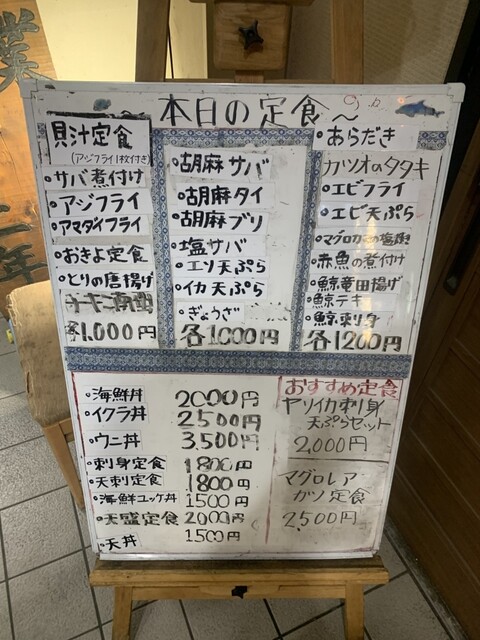 ～本日の定食～
貝汁定食
(アジフライ1枚付き)
・サバ煮付け
・アジフライ
・アマダイフライ
・おきよ定食
・とりの唐揚げ
各1.000円
・胡麻サバ
・胡麻タイ
・胡麻ブリ
・塩サバ
・エソ天ぷら
・イカ天ぷら
・ぎょうざ
各1000円
・あらだき
カツオのタタキ
・エビフライ
・エビ天ぷら
・赤魚の煮付け
・鯨竜田揚げ
・鯨テキ
・鯨刺身
各1200円
・海鮮丼 2000円
・イクラ丼 2500円
・ウニ丼 3,500円
・刺身定食 1800円
・天刺定食 1800円
・海鮮ユッケ丼 1500円
・天盛定食 2000円
・天丼 1500円
おすすめ定食
ヤリイカ刺身
天ぷらセット
2,000円
マグロレア
カツ定食
2,500円
業
年